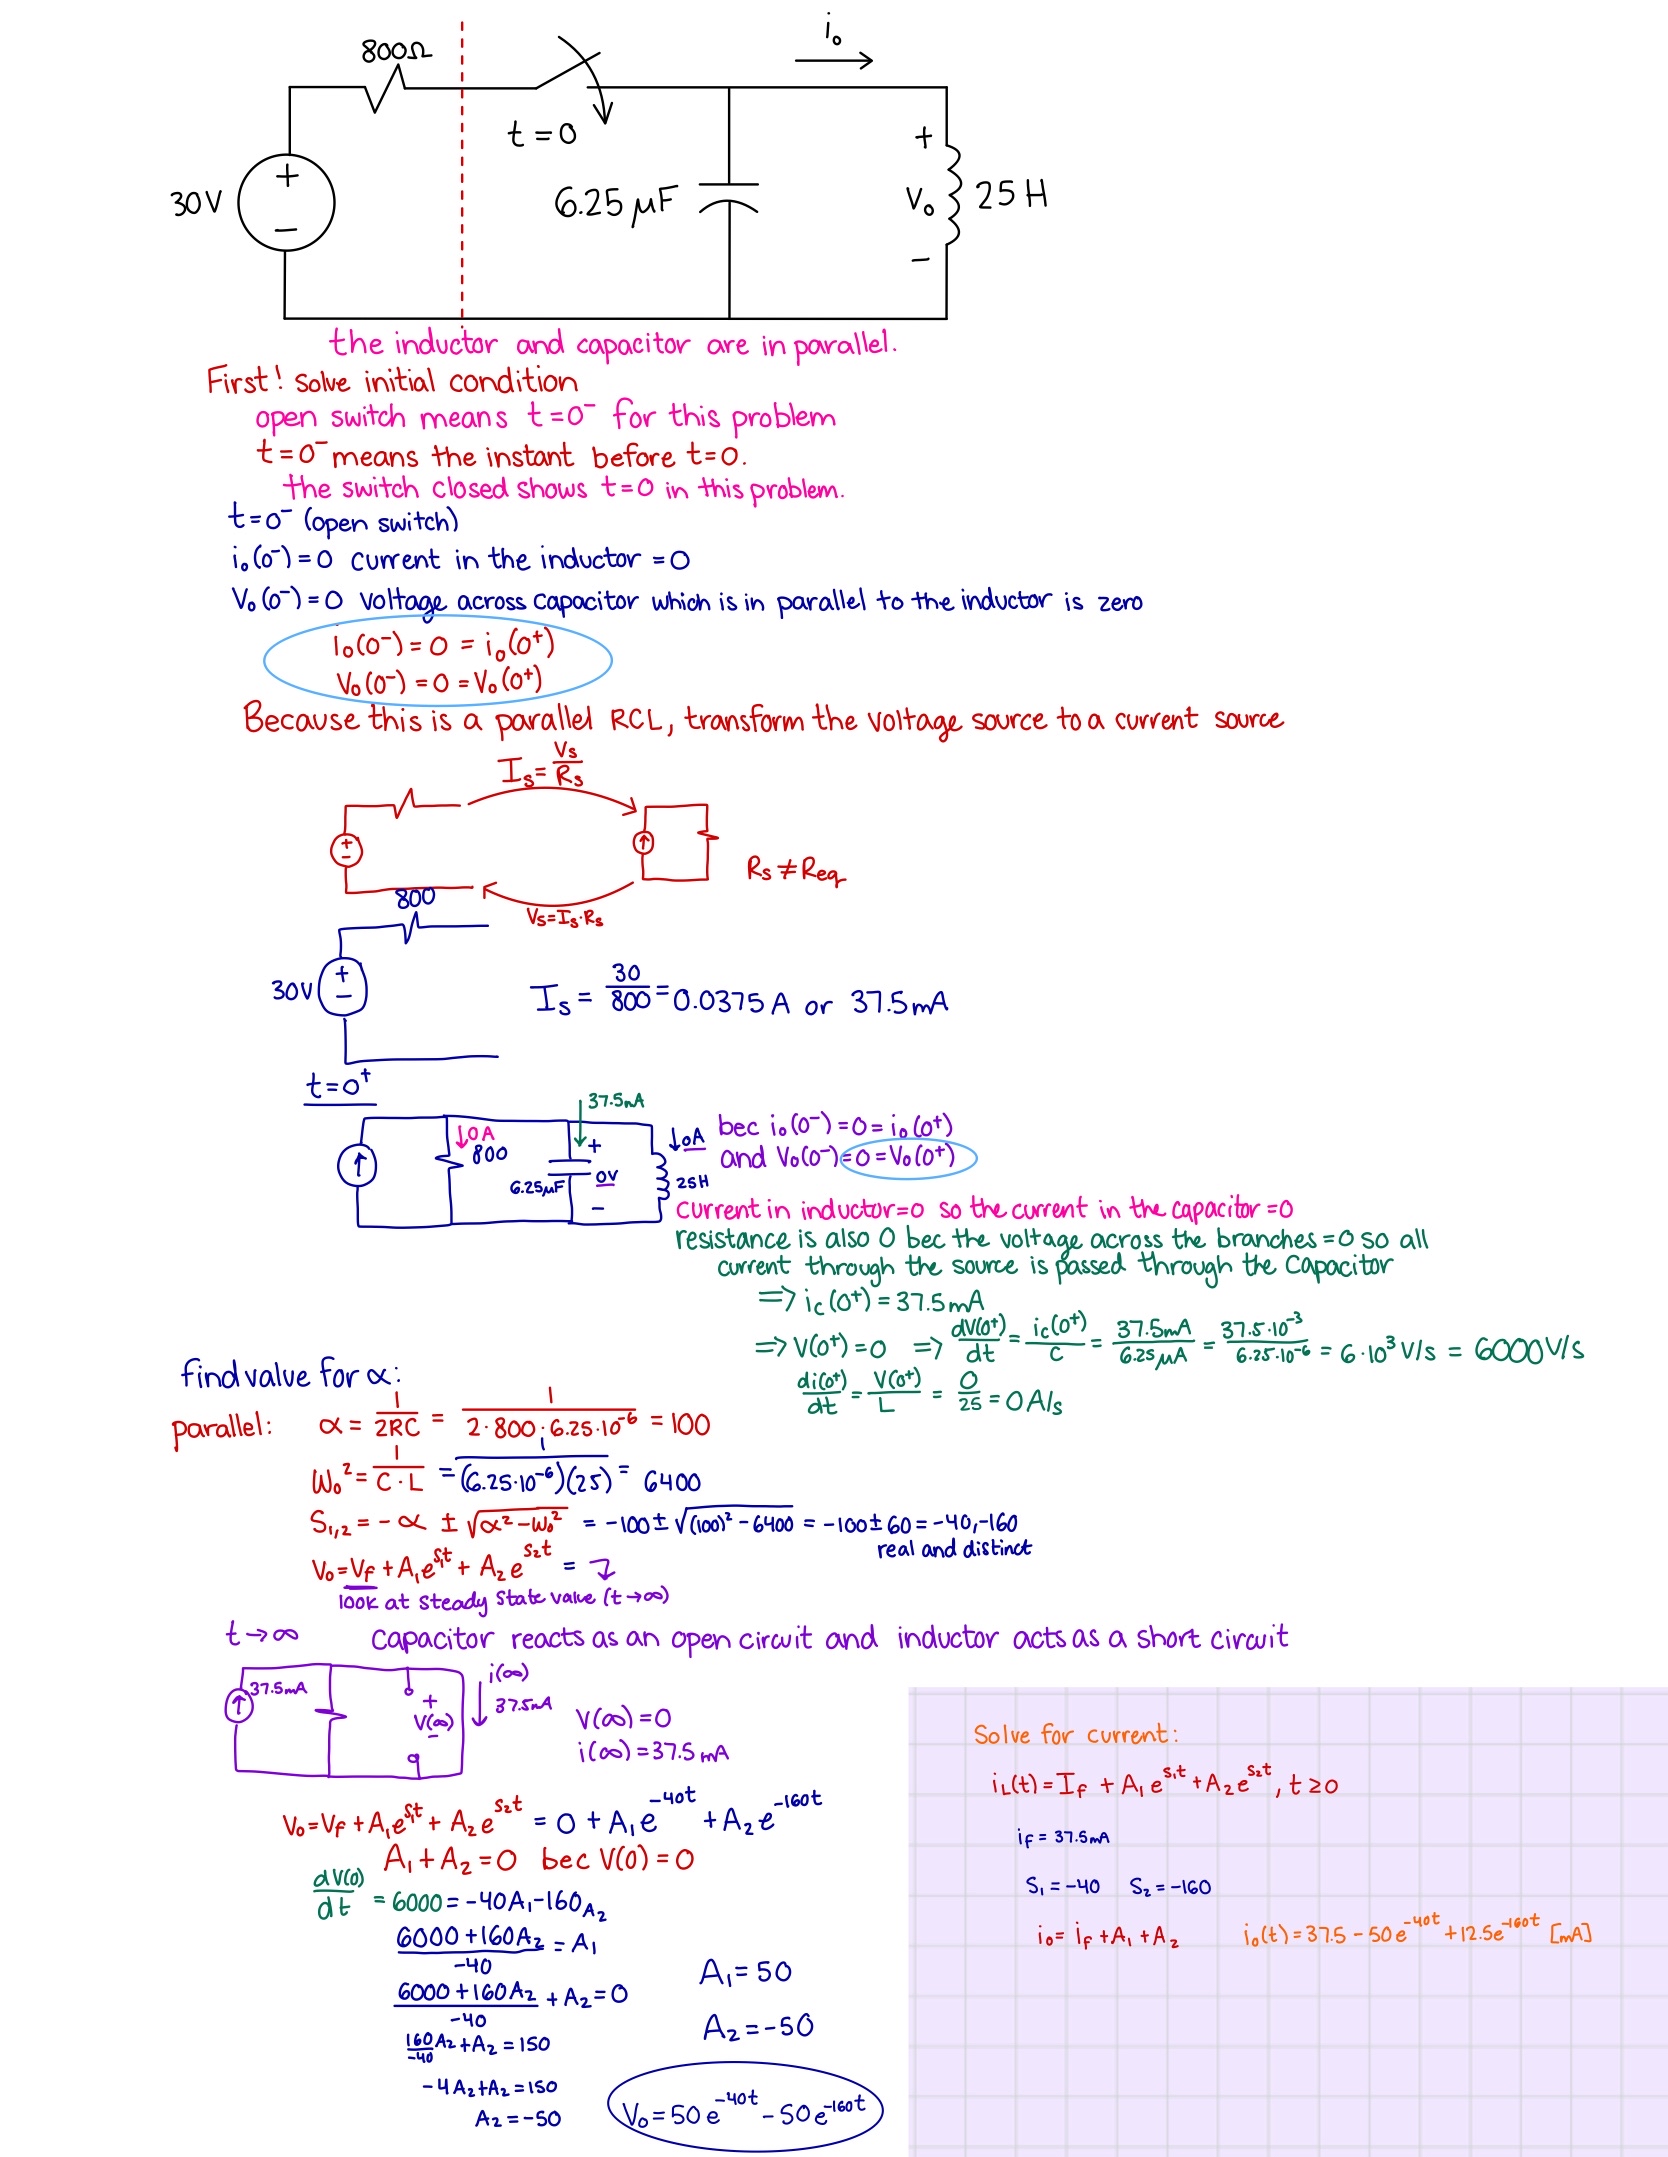 800Ω
i₀
t=0
30V
+
−
6.25 μF
+
V₀
−
25 H
the inductor and capacitor are in parallel.
First! solve initial condition
open switch means t=0⁻ for this problem
t=0⁻ means the instant before t=0.
the switch closed shows t=0 in this problem.
t=0⁻ (open switch)
i₀(0⁻)=0 current in the inductor =0
V₀(0⁻)=0 voltage across capacitor which is in parallel to the inductor is zero
I₀(0⁻)=0 = i₀(0⁺)
V₀(0⁻)=0 =V₀(0⁺)
Because this is a parallel RCL, transform the voltage source to a current source
Iₛ=Vₛ/Rₛ
+
−
Rₛ≠Req
Vₛ=Iₛ·Rₛ
800
30V
+
−
Iₛ = 30/800 =0.0375A or 37.5mA
t=0⁺
37.5mA
↓0A
800
+
6.25μF
0V
−
↓0A
25H
bec i₀(0⁻)=0=i₀(0⁺)
and V₀(0⁻)=0=V₀(0⁺)
current in inductor=0 so the current in the capacitor=0
resistance is also 0 bec the voltage across the branches=0 so all
current through the source is passed through the Capacitor
⟹ i_c(0⁺)=37.5mA
⟹ V(0⁺)=0 ⟹ dV(0⁺)/dt = i_c(0⁺)/C = 37.5mA/6.25μA = 37.5·10⁻³/6.25·10⁻⁶ = 6·10³ V/s = 6000V/s
di(0⁺)/dt = V(0⁺)/L = 0/25 = 0A/s
find value for α:
parallel: α = 1/2RC = 1/2·800·6.25·10⁻⁶ = 100
W₀²= 1/C·L = 1/(6.25·10⁻⁶)(25) = 6400
S₁,₂ = -α ± √α²-W₀² = -100±√(100)²-6400 = -100±60=-40,-160
real and distinct
V₀=V_f +A₁e^s₁t + A₂e^s₂t =
look at steady state value (t→∞)
t→∞ capacitor reacts as an open circuit and inductor acts as a short circuit
37.5mA
+
V(∞)
−
i(∞)
37.5mA
V(∞)=0
i(∞)=37.5mA
V₀=V_f +A₁e^s₁t + A₂e^s₂t = 0 + A₁e^-40t + A₂e^-160t
A₁+A₂=0 bec V(0)=0
dV(0)/dt = 6000=-40A₁-160A₂
6000+160A₂/-40 = A₁
6000+160A₂/-40 + A₂=0
160/-40 A₂+A₂=150
-4A₂+A₂=150
A₂=-50
A₁=50
A₂=-50
V₀=50e^-40t -50e^-160t
Solve for current:
i_L(t)=I_f + A₁e^s₁t +A₂e^s₂t, t≥0
i_f = 37.5mA
S₁=-40 S₂=-160
i₀= i_f +A₁+A₂ i₀(t)=37.5-50e^-40t +12.5e^-160t [mA]